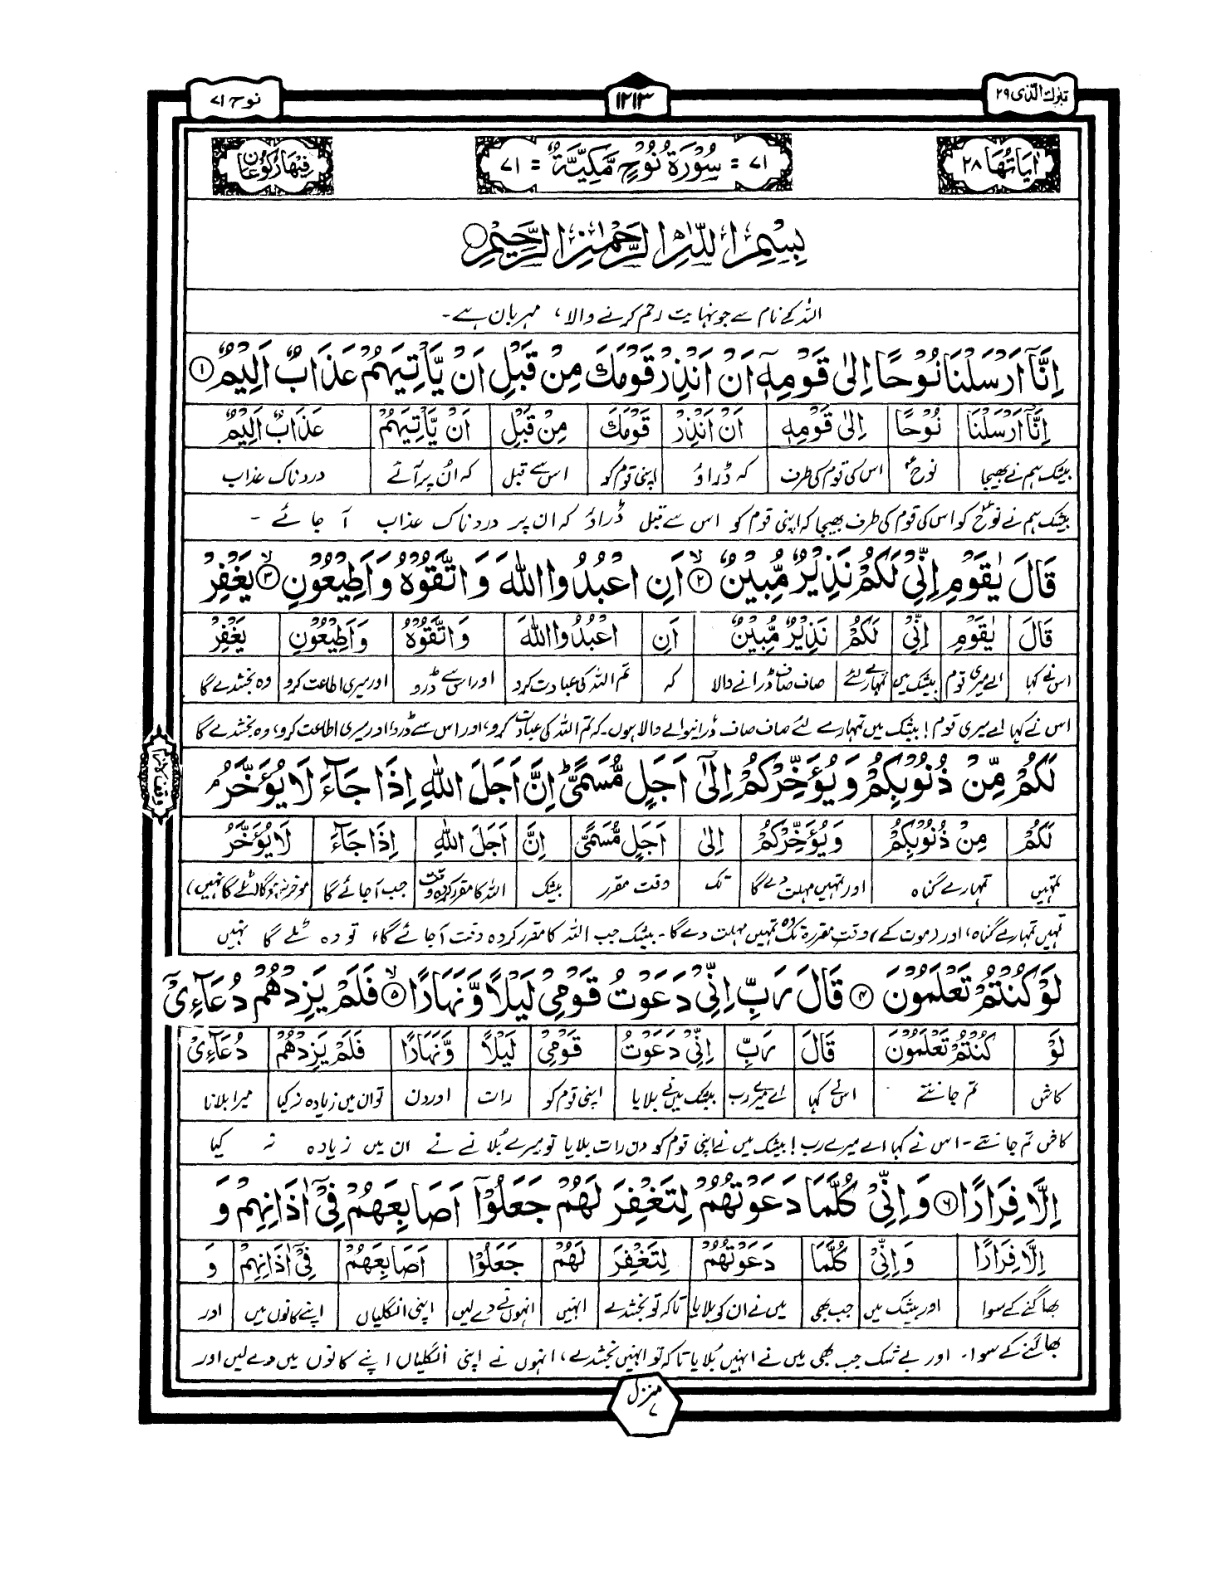 تبٰرک الذی ۲۹
۱۲۱۳
نوح ۷۱
اٰیَاتُهَا ۲۸
۷۱ = سُوْرَةُ نُوْحٍ مَّكِّیَّةٌ = ۷۱
فِیْهَا رُكُوْعَانِ
بِسْمِ اللّٰهِ الرَّحْمٰنِ الرَّحِیْمِ
اللہ کے نام سے جو نہایت رحم کرنے والا، مہربان ہے۔
اِنَّاۤ اَرْسَلْنَا نُوْحًا اِلٰی قَوْمِهٖۤ اَنْ اَنْذِرْ قَوْمَكَ مِنْ قَبْلِ اَنْ یَّاْتِیَهُمْ عَذَابٌ اَلِیْمٌ ۱
اِنَّاۤ اَرْسَلْنَا | نُوْحًا | اِلٰی قَوْمِهٖ | اَنْ اَنْذِرْ | قَوْمَكَ | مِنْ قَبْلِ | اَنْ یَّاْتِیَهُمْ | عَذَابٌ اَلِیْمٌ
بیشک ہم نے بھیجا | نوحؑ | اس کی قوم کی طرف | کہ ڈراؤ | اپنی قوم کو | اس سے قبل | کہ اُن پر آئے | دردناک عذاب
بیشک ہم نے نوحؑ کو اس کی قوم کی طرف بھیجا کہ اپنی قوم کو اس سے قبل ڈراؤ کہ ان پر دردناک عذاب آ جائے۔
قَالَ یٰقَوْمِ اِنِّیْ لَكُمْ نَذِیْرٌ مُّبِیْنٌ ۲ اَنِ اعْبُدُوا اللّٰهَ وَاتَّقُوْهُ وَاَطِیْعُوْنِ ۳ یَغْفِرْ
قَالَ | یٰقَوْمِ | اِنِّیْ | لَكُمْ | نَذِیْرٌ مُّبِیْنٌ | اَنِ | اعْبُدُوا اللّٰهَ | وَاتَّقُوْهُ | وَاَطِیْعُوْنِ | یَغْفِرْ
اس نے کہا | اے میری قوم | بیشک میں | تمہارے لئے | صاف صاف ڈرانے والا | کہ | تم اللہ کی عبادت کرو | اور اس سے ڈرو | اور میری اطاعت کرو | وہ بخشدے گا
اس نے کہا اے میری قوم! بیشک میں تمہارے لئے صاف صاف ڈرانیوالے والا ہوں۔ کہ تم اللہ کی عبادت کرو، اور اس سے ڈرو اور میری اطاعت کرو، وہ بخشدے گا
لَكُمْ مِّنْ ذُنُوْبِكُمْ وَیُؤَخِّرْكُمْ اِلٰۤی اَجَلٍ مُّسَمًّی اِنَّ اَجَلَ اللّٰهِ اِذَا جَآءَ لَا یُؤَخَّرُ
لَكُمْ | مِنْ ذُنُوْبِكُمْ | وَیُؤَخِّرْكُمْ | اِلٰی | اَجَلٍ مُّسَمًّی | اِنَّ | اَجَلَ اللّٰهِ | اِذَا جَآءَ | لَا یُؤَخَّرُ
تمہیں | تمہارے گناہ | اور تمہیں مہلت دے گا | تک | وقت مقرر | بیشک | اللہ کا مقرر کردہ وقت | جب آ جائے گا | موخر نہ ہوگا (ٹلے گا نہیں)
تمہیں تمہارے گناہ، اور (موت کے) وقتِ مقررہ تک وہ تمہیں مہلت دے گا۔ بیشک جب اللہ کا مقرر کردہ وقت آ جائے گا، تو وہ ٹلے گا نہیں
لَوْ كُنْتُمْ تَعْلَمُوْنَ ۴ قَالَ رَبِّ اِنِّیْ دَعَوْتُ قَوْمِیْ لَیْلًا وَّنَهَارًا ۵ فَلَمْ یَزِدْهُمْ دُعَآءِیْۤ
لَوْ | كُنْتُمْ تَعْلَمُوْنَ | قَالَ | رَبِّ | اِنِّیْ دَعَوْتُ | قَوْمِیْ | لَیْلًا | وَّنَهَارًا | فَلَمْ یَزِدْهُمْ | دُعَآءِیْ
کاش | تم جانتے | اس نے کہا | اے میرے رب | بیشک میں نے بلایا | اپنی قوم کو | رات | اور دن | تو ان میں زیادہ نہ کیا | میرا بلانا
کاش تم جانتے۔ اس نے کہا اے میرے رب! بیشک میں نے اپنی قوم کو دن رات بلایا تو میرے بُلانے نے ان میں زیادہ نہ کیا
اِلَّا فِرَارًا ۶ وَاِنِّیْ كُلَّمَا دَعَوْتُهُمْ لِتَغْفِرَ لَهُمْ جَعَلُوْۤا اَصَابِعَهُمْ فِیْۤ اٰذَانِهِمْ وَ
اِلَّا فِرَارًا | وَاِنِّیْ | كُلَّمَا | دَعَوْتُهُمْ | لِتَغْفِرَ | لَهُمْ | جَعَلُوْا | اَصَابِعَهُمْ | فِیْۤ اٰذَانِهِمْ | وَ
بھاگنے کے سوا | اور بیشک میں | جب بھی | میں نے ان کو بلایا | تا کہ تو بخشدے | انہیں | انہوں نے دے لیں | اپنی انگلیاں | اپنے کانوں میں | اور
بھاگنے کے سوا۔ اور بے شک جب بھی میں نے انہیں بُلایا تا کہ تو انہیں بخشدے، انہوں نے اپنی انگلیاں اپنے کانوں میں دے لیں اور
منزل ۷